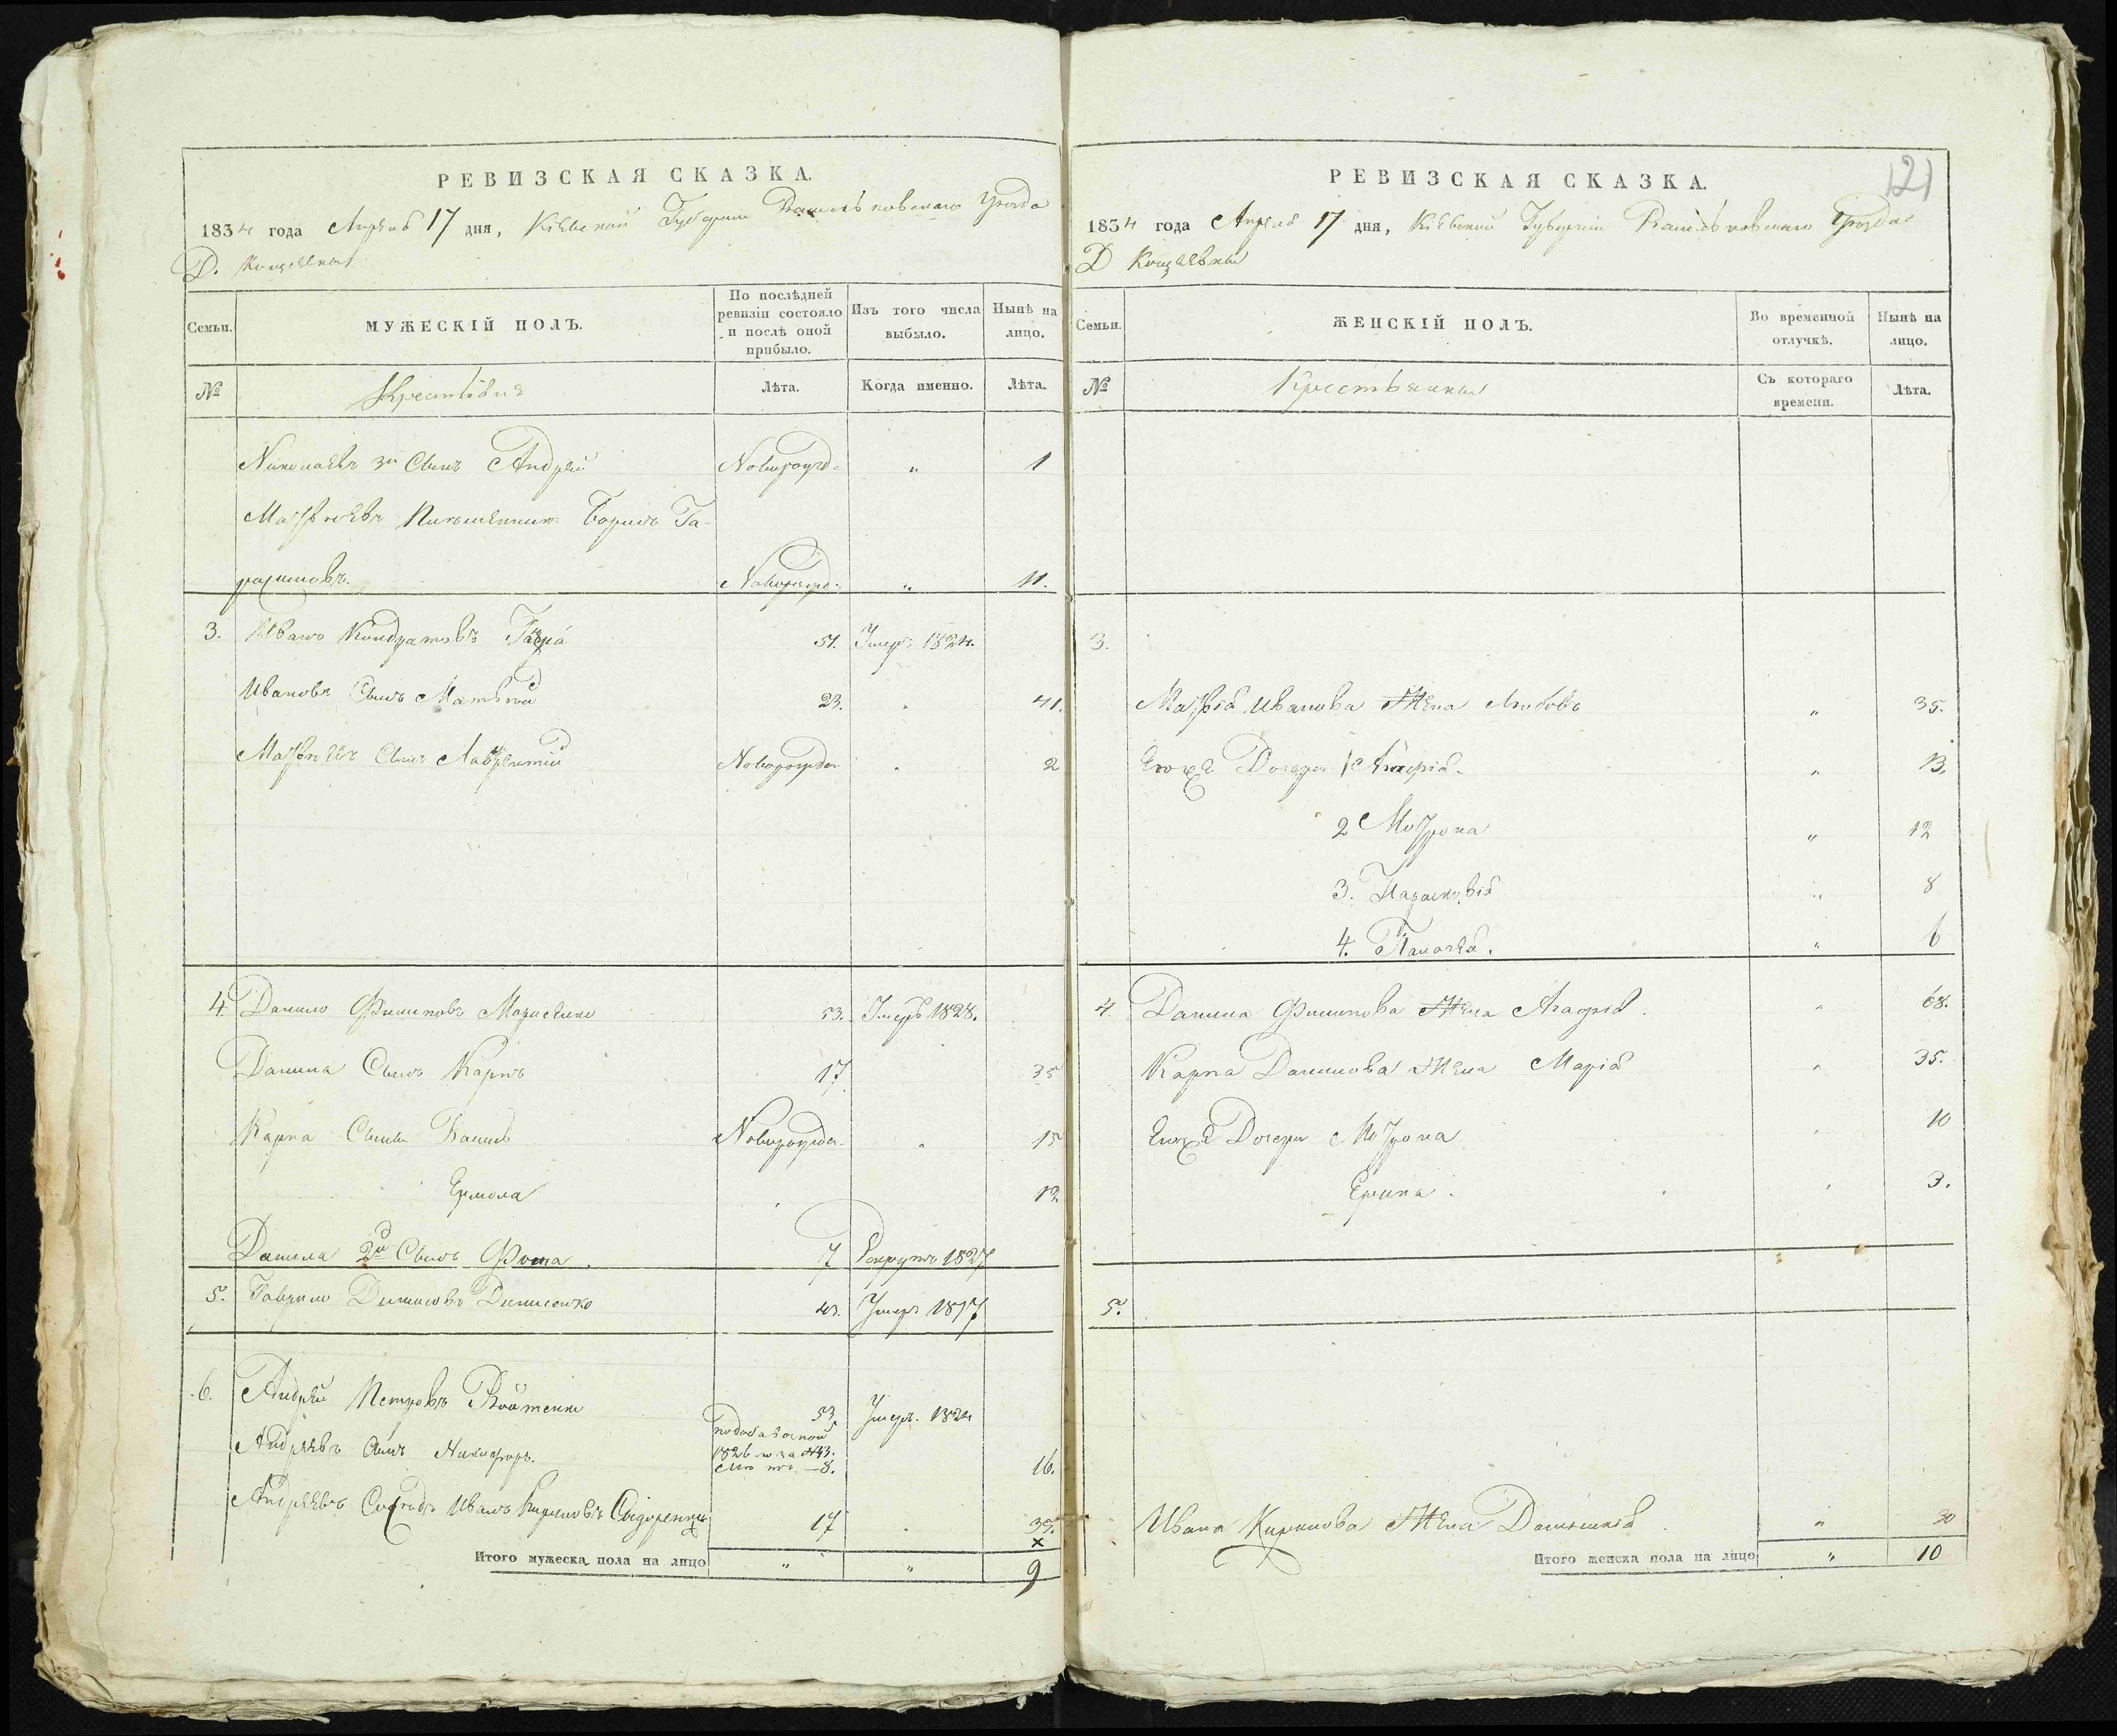 РЕВИЗСКАЯ СКАЗКА.
1834 года Апреля 17 дня, Кіевской Губерніи Васильковскаго Уезда
Д. Кощеевки
Семьи.
МУЖЕСКІЙ ПОЛЪ.
По послѣдней ревизіи состояло и послѣ оной прибыло.
Изъ того числа выбыло.
Нынѣ на лицо.
№
Крестьяне
Лѣта.
Когда именно.
Лѣта.
Николаевъ 3й Сынъ Андрей Новорожд: " 1
Матвѣевъ Борисъ Га-
расимовъ. Новорожд: " 11.
3. Иванъ Кондратовъ 51. Умеръ 1824.
Ивановъ Сынъ Матвѣй 23. 41.
Матвѣевъ Сынъ Лаврентій Новорожден 2
4 Данило Филиповъ 53. Умеръ 1828.
Данила Сынъ Карпъ 17 35
Карпа Сыны Василь Новорожден " 15
Ермола 12
Данила 2й Сынъ Фома. 7 Рекрутъ 1827
5. Гаврило Денисовъ Денисенко 43. Умеръ 1817
6. Андрей Петровъ Войтенко 53 Умеръ 1824
Андреевъ Сынъ Никифоръ. подобавочной 1826 16.
Андреевъ Иванъ Кириловъ Сидоренко 17 35.
×
Итого мужеска пола на лицо " " 9
121
РЕВИЗСКАЯ СКАЗКА.
1834 года Апреля 17 дня, Кіевской Губерніи Васильковскаго Уезда
Д Кощеевки
Семьи.
ЖЕНСКІЙ ПОЛЪ.
Во временной отлучкѣ.
Нынѣ на лицо.
№
Крестьянки
Съ котораго времени.
Лѣта.
3.
Матвѣя Иванова Жена Любовь " 35.
Его же Дочери 1 Агафія. " 13.
2 Мотрона " 12
3. Парасковія " 8
4. Палагея. " 6
4. Данила Филипова Жена Агафія. " 68.
Карпа Данилова Жена Марія " 35.
Его же Дочери Мотрона 10
Ерина. 3.
5.
Ивана Кирилова Жена " 30
Итого женска пола на лицо " 10